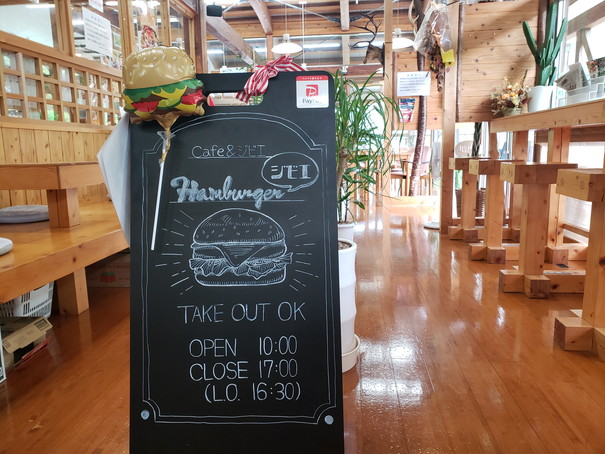 PayPay
Cafe&ジビエ
ジビエ
Hamburger
TAKE OUT OK
OPEN 10:00
CLOSE 17:00
(L.O. 16:30)